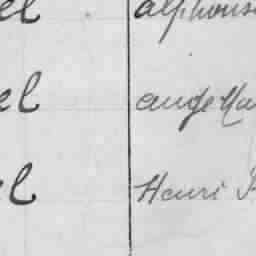 el alphonse
el ange Ma
el Henri